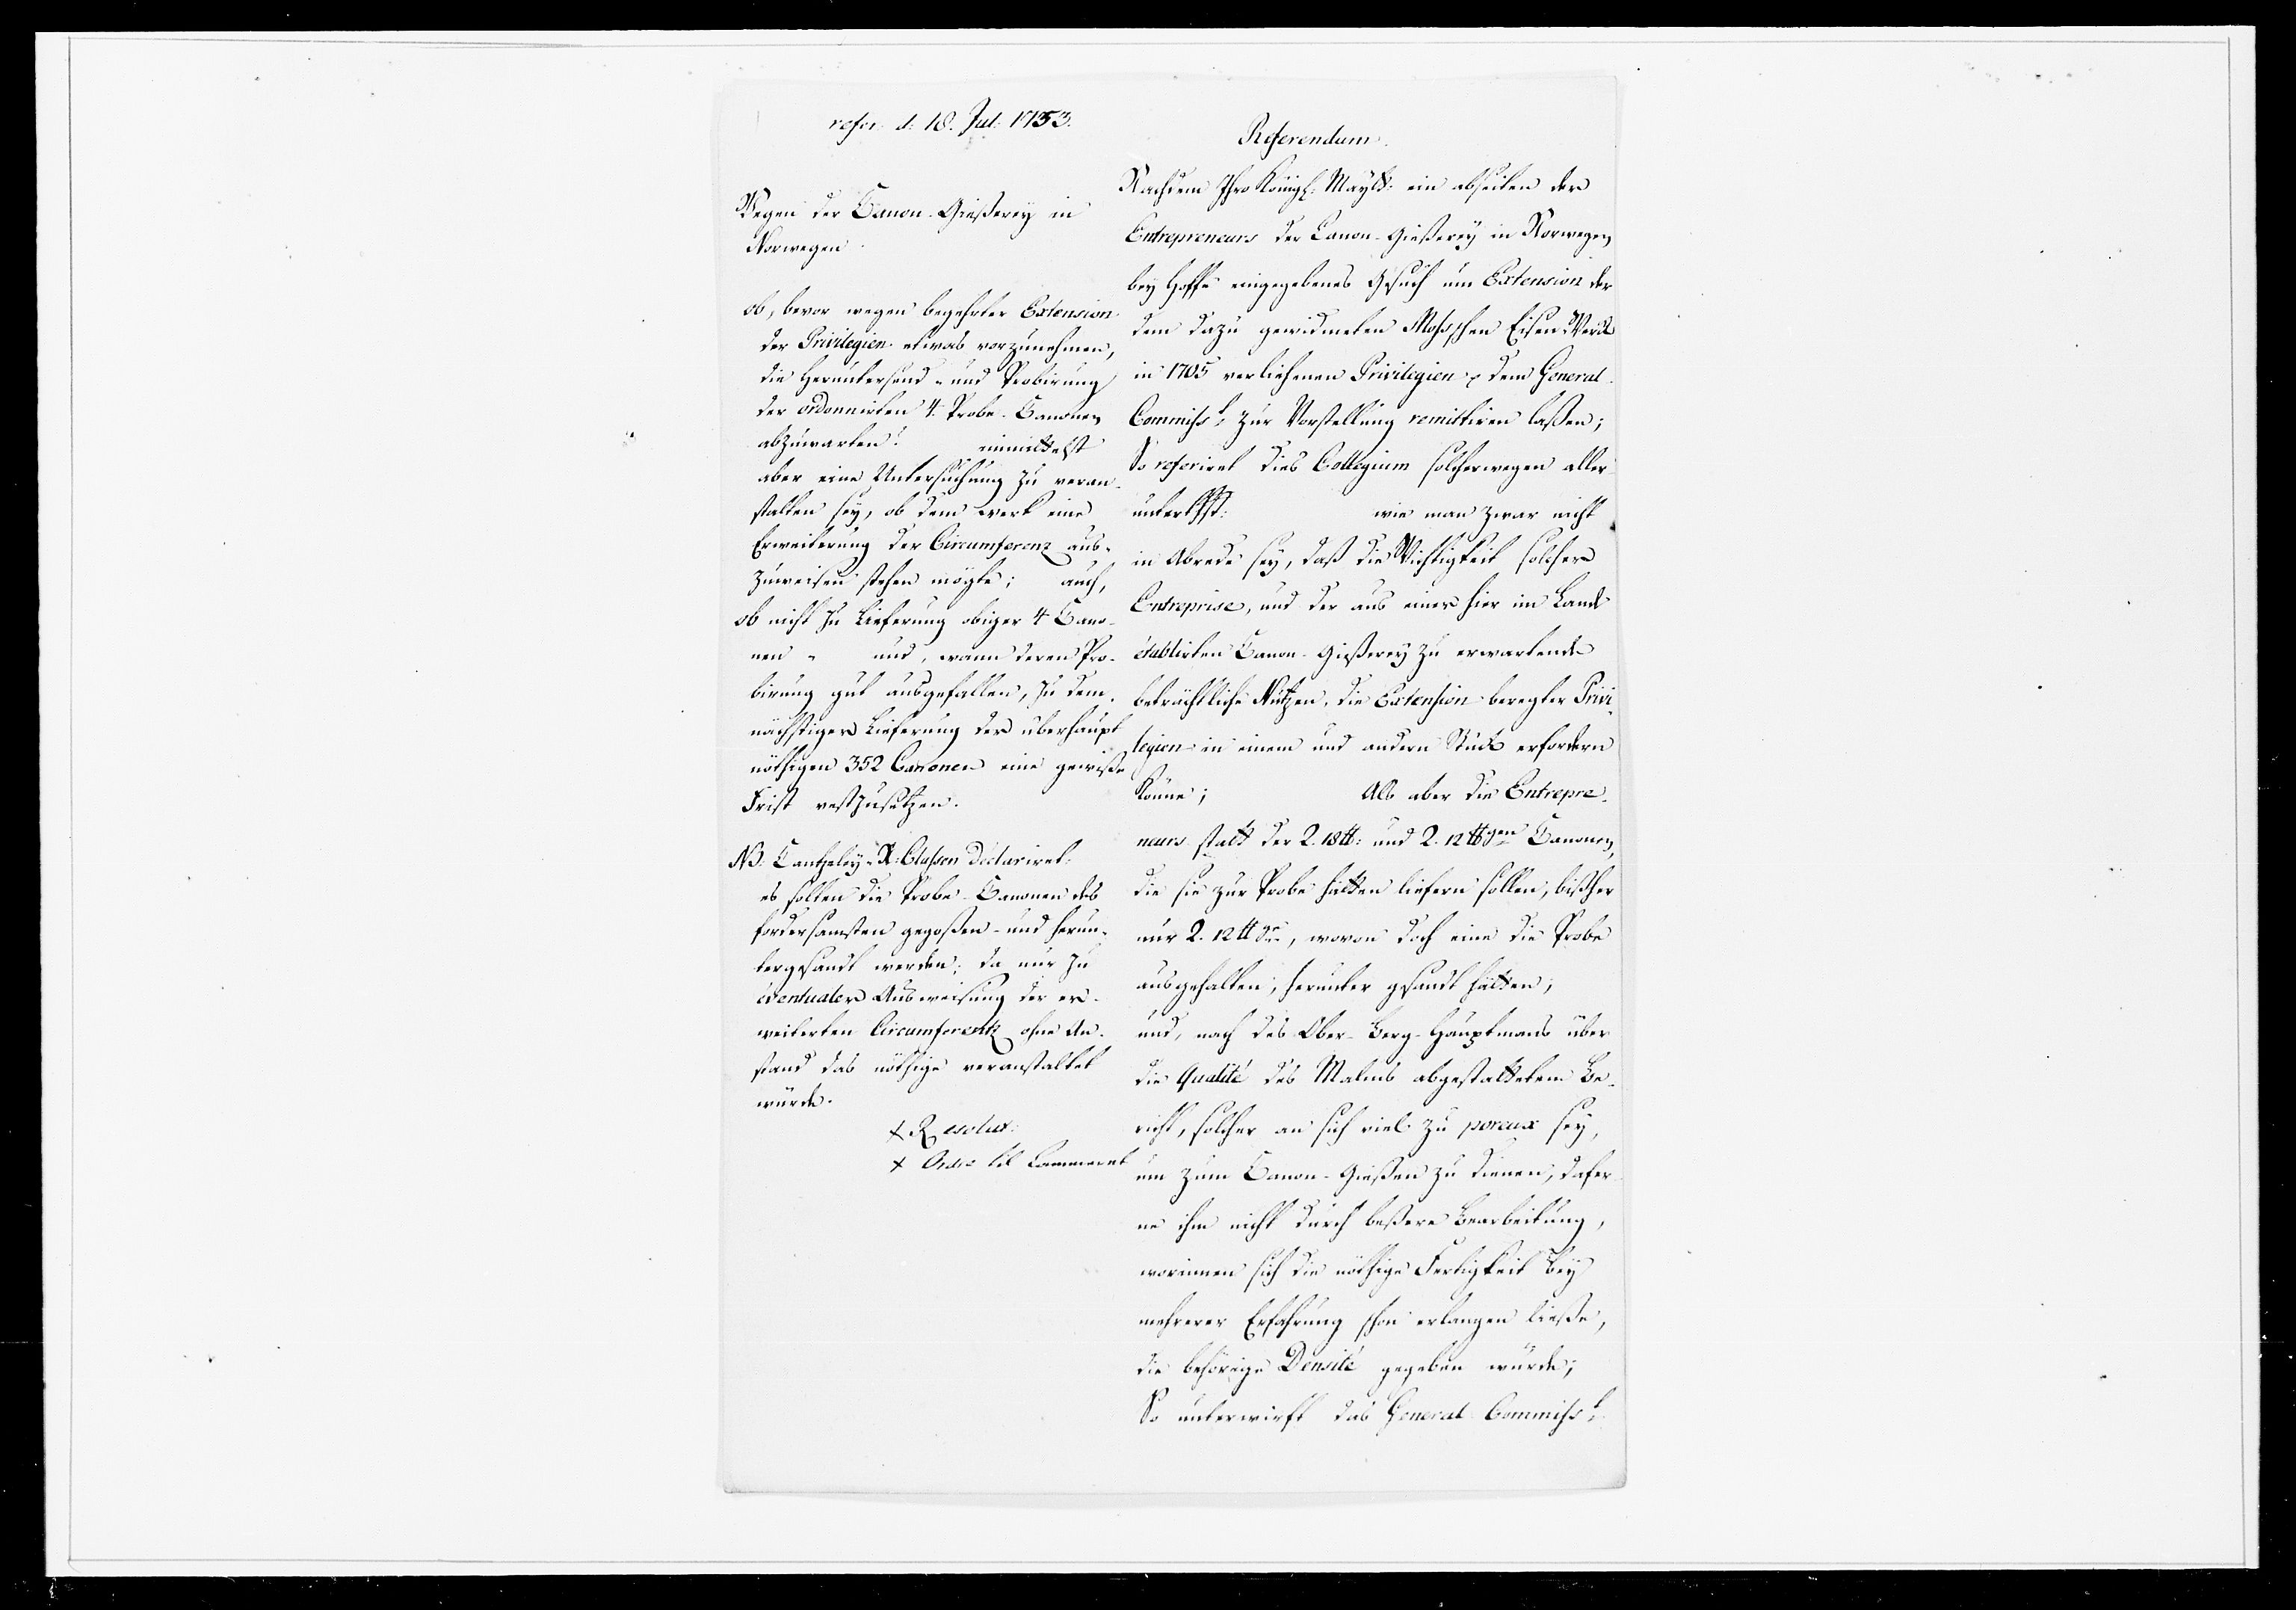 refer. d: 18. Jul: 1753.
Wegen der Canon-Gießerey in
Norwegen.
ob, bevor wegen begehrter Extension
der Privilegien etwas vorzunehmen,
die Heruntersend- und Probirung
der ordonnirten 4. Probe-Canonen
abzuwarten? immittelst
aber eine Untersuchung zu veran-
stalten sey, ob dem Werk eine
Erweiterung der Circumferenz aus-
zuweisen stehen mögte; auch,
ob nicht zu Lieferung obiger 4 Cano-
nen - und, wann deren Pro-
birung gut ausgefallen, zu dem-
nächstiger Lieferung der überhaupt
nöthigen 352 Canonen eine gewiße
Frist vestzusetzen.
NB: Cantzeley-R: Classen declariret:
es sollten die Probe-Canonen des
fordersamsten gegoßen- und herun-
tergesandt werden; da nur zu
eventualer Ausweisung der er-
weiterten Circumferentz ohne An-
stand das nöthige veranstaltet
würde.
+ Resolut:
+ Ordre til Cammeret
Referendum.
Nachdem Ihro Königl: Maytt: ein abseiten der
Entrepreneurs der Canon-Gießerey in Norwegen
bey Hoffe eingegebenes Gesuch um Extension der
dem dazu gewidmeten Mossschen Eisen-Werck
in 1705 verliehenen Privilegien, dem General-
Commisst: zur Vorstellung remittiren laßen;
So referiret dies Collegium solcherwegen aller-
unterthst: wie man zwar nicht
in Abrede sey, daß die Wichtigkeit solcher
Entreprise, und der aus einer hier im Lande
établirten Canon-Gießerey zu erwartende
beträchtliche Nutzen, die Extension beregter Privi-
legien in einem und andern Stück erfordern
könne; Als aber die Entrepre-
neurs statt der 2. 18 ℔: und 2. 12 ℔digen Canonen,
die sie zur Probe hätten liefern sollen, bißher
nur 2. 12 ℔dge, wovon doch eine die Probe
ausgehalten, herunter gesandt hätten;
und, nach des Ober-Berg-Hauptmans über
die Qualité des Malms abgestattetem Be-
richt, solcher an sich viel zu poreux sey,
um zum Canon-Gießen zu dienen, dafer-
ne ihm nicht durch beßere Bearbeitung,
worinnen sich die nöthige Fertigkeit bey
mehrerer Erfahrung schon erlangen ließe,
die behörige Densité gegeben würde;
So unterwirft das General Commisst: